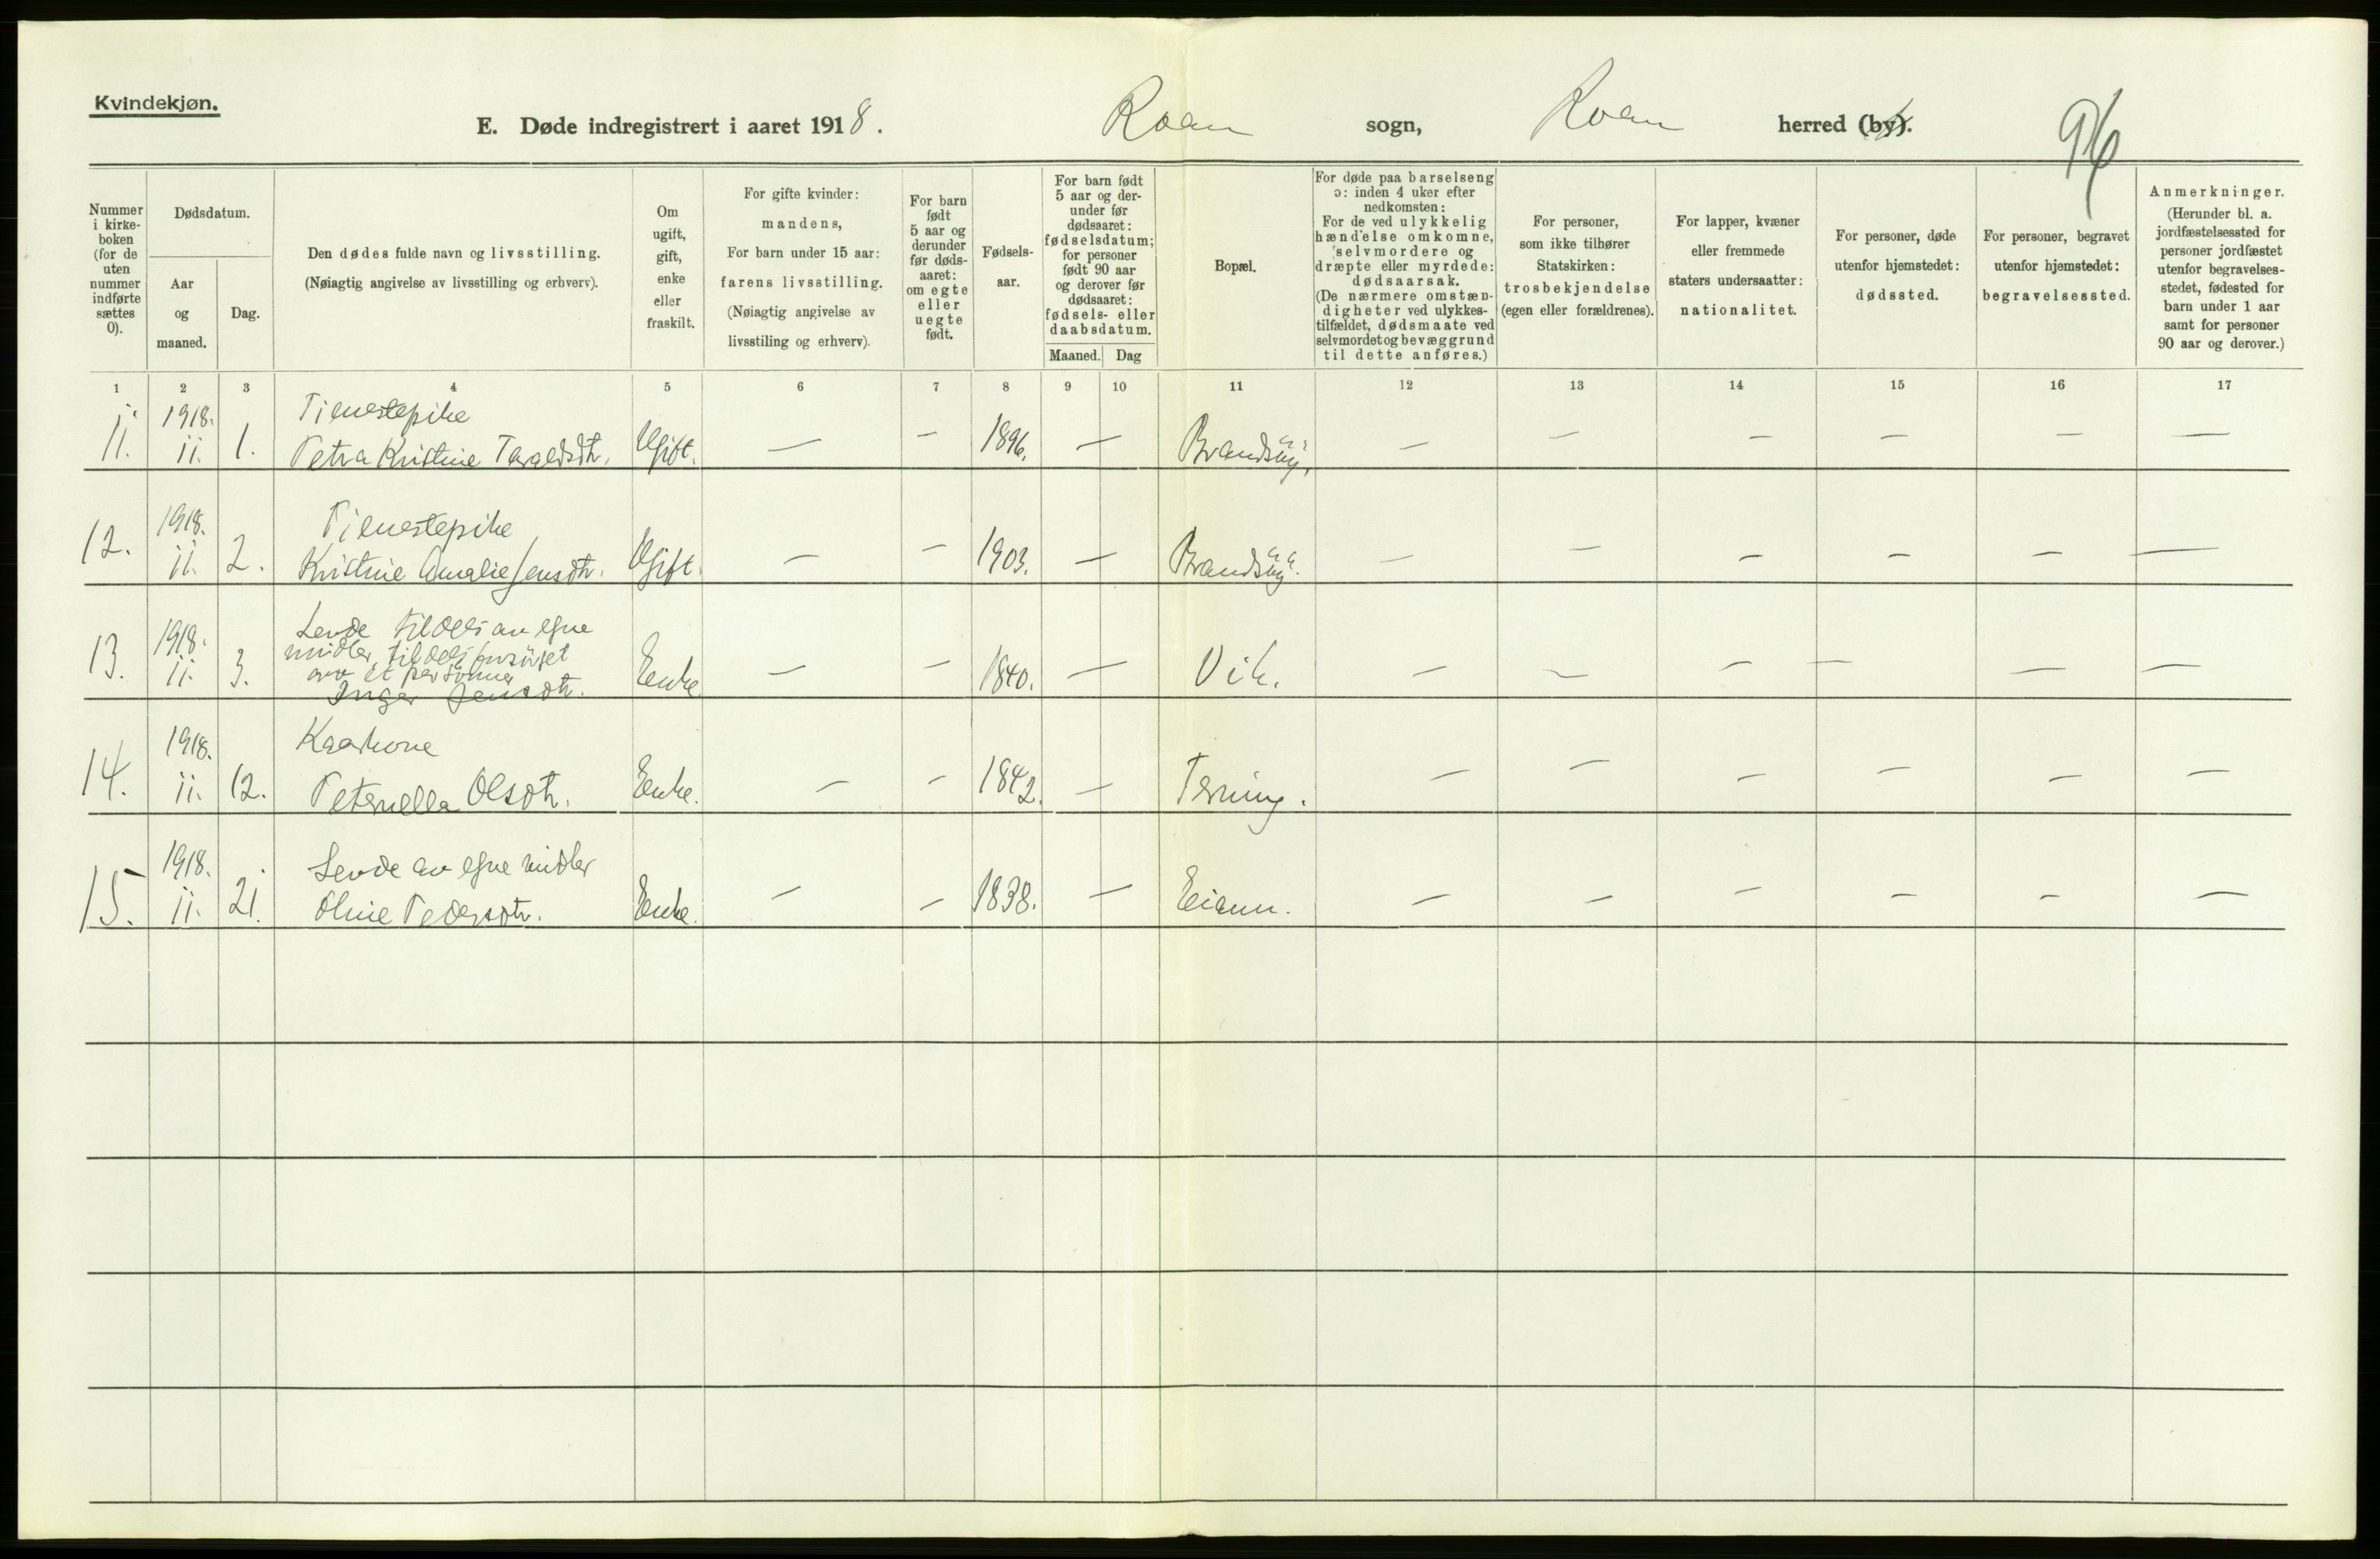 Kvindekjøn.
E. Døde indregistrert i aaret 1918. Roan sogn, Roan herred (by).
96
Nummer i kirkeboken (for de uten nummer indførte sættes 0).
Dødsdatum.
Aar og maaned.
Dag.
Den dødes fulde navn og livsstilling.
(Nøiagtig angivelse av livsstilling og erhverv).
Om ugift, gift, enke eller fraskilt.
For gifte kvinder:
mandens,
For barn under 15 aar:
farens livsstilling.
(Nøiagtig angivelse av
livsstiling og erhverv).
For barn født 5 aar og derunder før dødsaaret: om egte eller uegte født.
Fødselsaar.
For barn født 5 aar og derunder før dødsaaret: fødselsdatum; for personer født 90 aar og derover før dødsaaret: fødsels- eller daabsdatum.
Maaned. Dag
Bopæl.
For døde paa barselseng ɔ: inden 4 uker efter nedkomsten:
For de ved ulykkelig hændelse omkomne, selvmordere og dræpte eller myrdede: dødsaarsak.
(De nærmere omstændigheter ved ulykkestilfældet, dødsmaate ved selvmordet og bevæggrund til dette anføres.)
For personer, som ikke tilhører Statskirken: trosbekjendelse (egen eller forældrenes).
For lapper, kvæner eller fremmede staters undersaatter: nationalitet.
For personer, døde utenfor hjemstedet: dødssted.
For personer, begravet utenfor hjemstedet: begravelsessted.
Anmerkninger.
(Herunder bl. a. jordfæstelsessted for personer jordfæstet utenfor begravelsesstedet, fødested for barn under 1 aar samt for personer 90 aar og derover.)
1 2 3 4 5 6 7 8 9 10 11 12 13 14 15 16 17
1918. Tienestepike
11. 11. 1. Petra Kristine Taraldsdtr. Ugift. — — 1896. — Brandsöy. — — — — — —
1918. Tienestepike
12. 11. 2. Kristine Amalie Jensdtr. Ugift. — — 1903. — Brandsöy. — — — — — —
1918. Levde tildels av egne
midler, tildels forsørget
13. 11. 3. av Enke — — 1840. — Vik. — — — — — —
Inger Jensdtr.
1918. Kaarkone
14. 11. 12. Peternella Olsdtr. Enke. — — 1842. — Terning. — — — — — —
1918. Levde av egne midler
15. 11. 21. Oline Pedersdtr. Enke. — — 1838. — — — — — — —